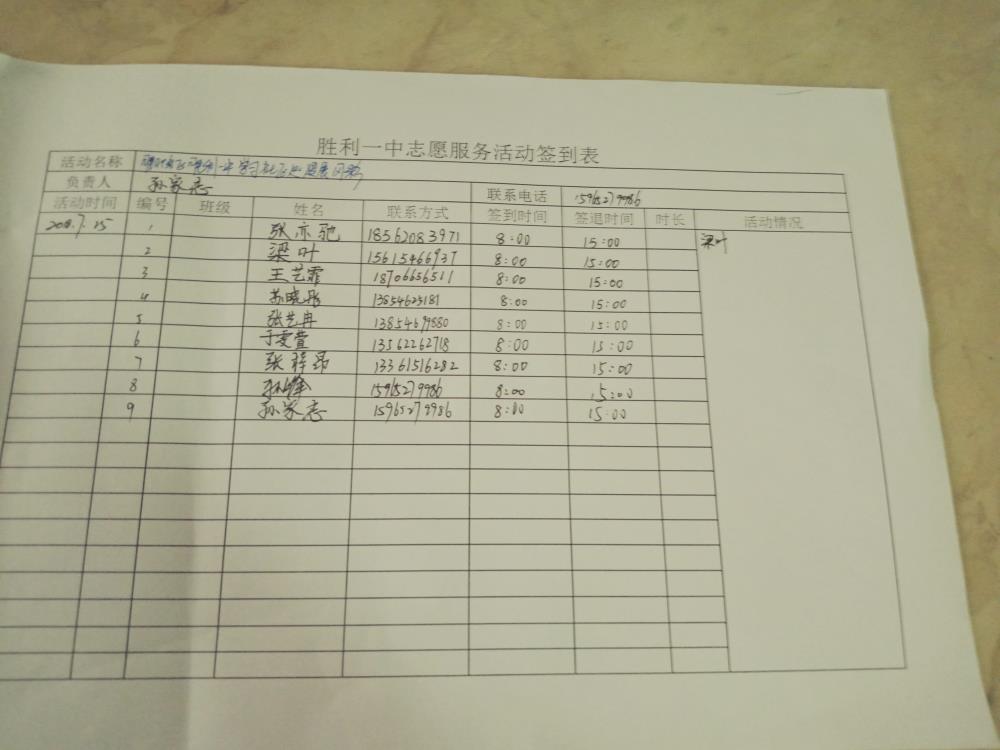 胜利一中志愿服务活动签到表
活动名称
负责人 孙家志 联系电话 15965279986
活动时间 编号 班级 姓名 联系方式 签到时间 签退时间 时长 活动情况
2018.7.25 1 张亦驰 18562083971 8:00 15:00 梁叶
2 梁叶 15615466937 8:00 15:00
3 王艺霏 18706656511 8:00 15:00
4 苏晓彤 13854623181 8:00 15:00
5 张艺冉 13854699880 8:00 15:00
6 于雯萱 13562262718 8:00 15:00
7 张梓昂 13361516282 8:00 15:00
8 15965279986 8:00 15:00
9 孙家志 15965279986 8:00 15:00